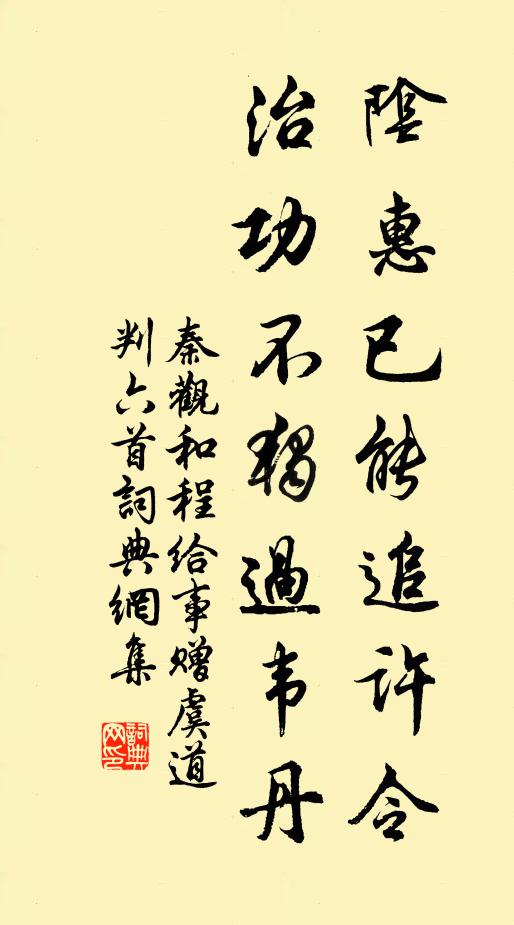 陰惠已能追許令
治功不獨過韦丹
秦觀和程給事贈虞道
判六首詞典網集
詞典
网印